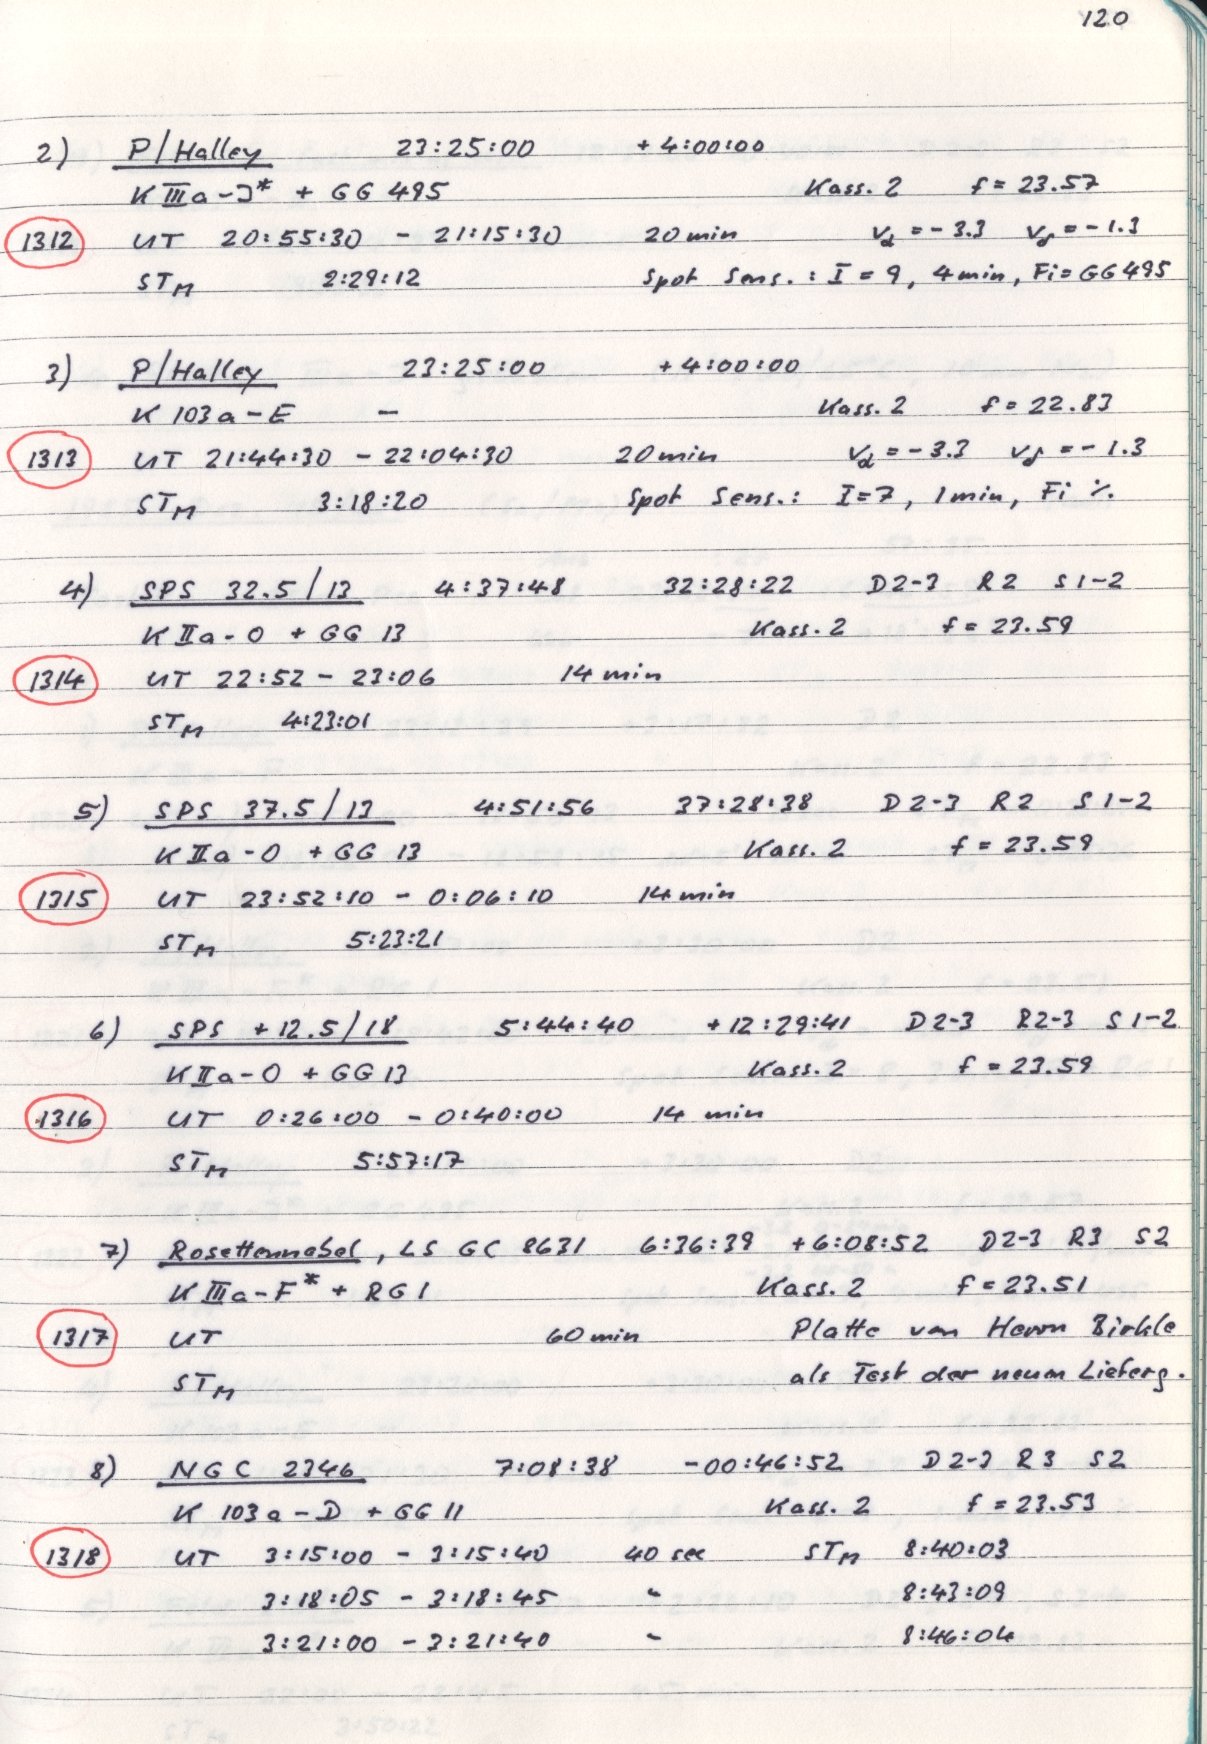 120
2) P/Halley 23:25:00 +4:00:00
K IIIa-J* + GG 495 Kass. 2 f = 23.57
1312 UT 20:55:30 - 21:15:30 20 min vα = -3.3 vδ = -1.3
STM 2:29:12 Spot Sens.: I = 9, 4 min, Fi = GG 495
3) P/Halley 23:25:00 +4:00:00
K 103a-E - Kass. 2 f = 22.83
1313 UT 21:44:30 - 22:04:30 20 min vα = -3.3 vδ = -1.3
STM 3:18:20 Spot Sens.: I = 7, 1 min, Fi %.
4) SPS 32.5/13 4:37:48 32:28:22 D2-3 R2 S1-2
K IIa-O + GG 13 Kass. 2 f = 23.59
1314 UT 22:52 - 23:06 14 min
STM 4:23:01
5) SPS 37.5/13 4:51:56 37:28:38 D2-3 R2 S1-2
K IIa-O + GG 13 Kass. 2 f = 23.59
1315 UT 23:52:10 - 0:06:10 14 min
STM 5:23:21
6) SPS +12.5/18 5:44:40 +12:29:41 D2-3 R2-3 S1-2
K IIa-O + GG 13 Kass. 2 f = 23.59
1316 UT 0:26:00 - 0:40:00 14 min
STM 5:57:17
7) Rosettennebel, LS GC 8631 6:36:39 +6:08:52 D2-3 R3 S2
K IIIa-F* + RG 1 Kass. 2 f = 23.51
1317 UT 60 min Platte von Herrn Birkle
STM als Test der neuen Lieferg.
8) NGC 2346 7:08:38 -00:46:52 D2-3 R3 S2
K 103a-D + GG 11 Kass. 2 f = 23.53
1318 UT 3:15:00 - 3:15:40 40 sec STM 8:40:03
3:18:05 - 3:18:45 " 8:43:09
3:21:00 - 3:21:40 " 8:46:04